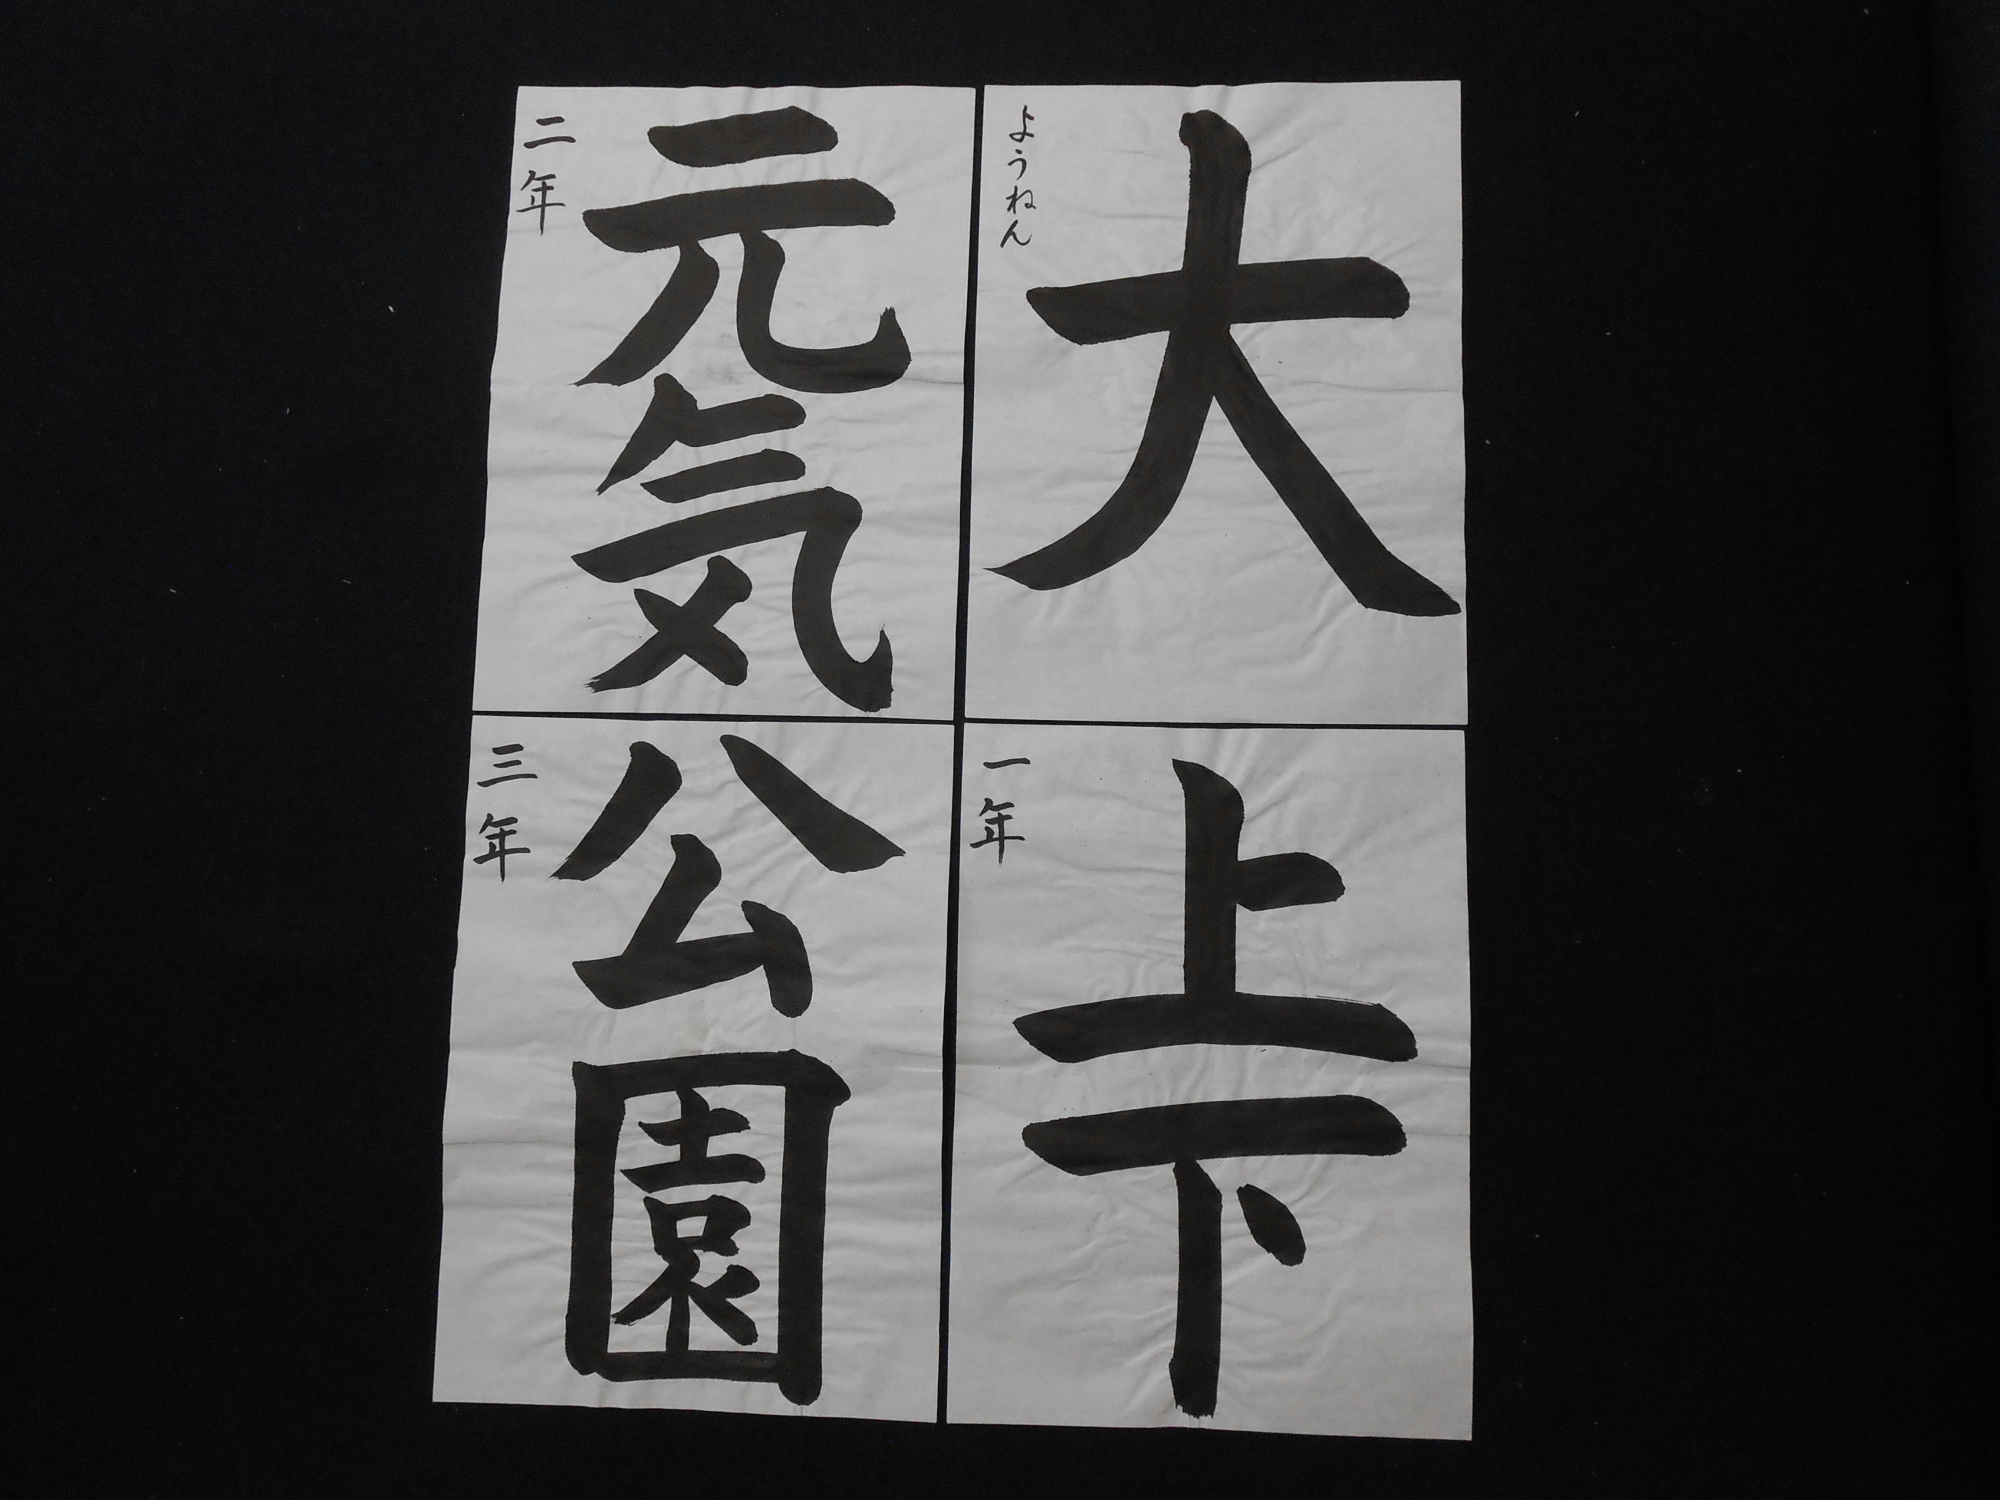 大
ようねん
上下
一年
元気
二年
公園
三年